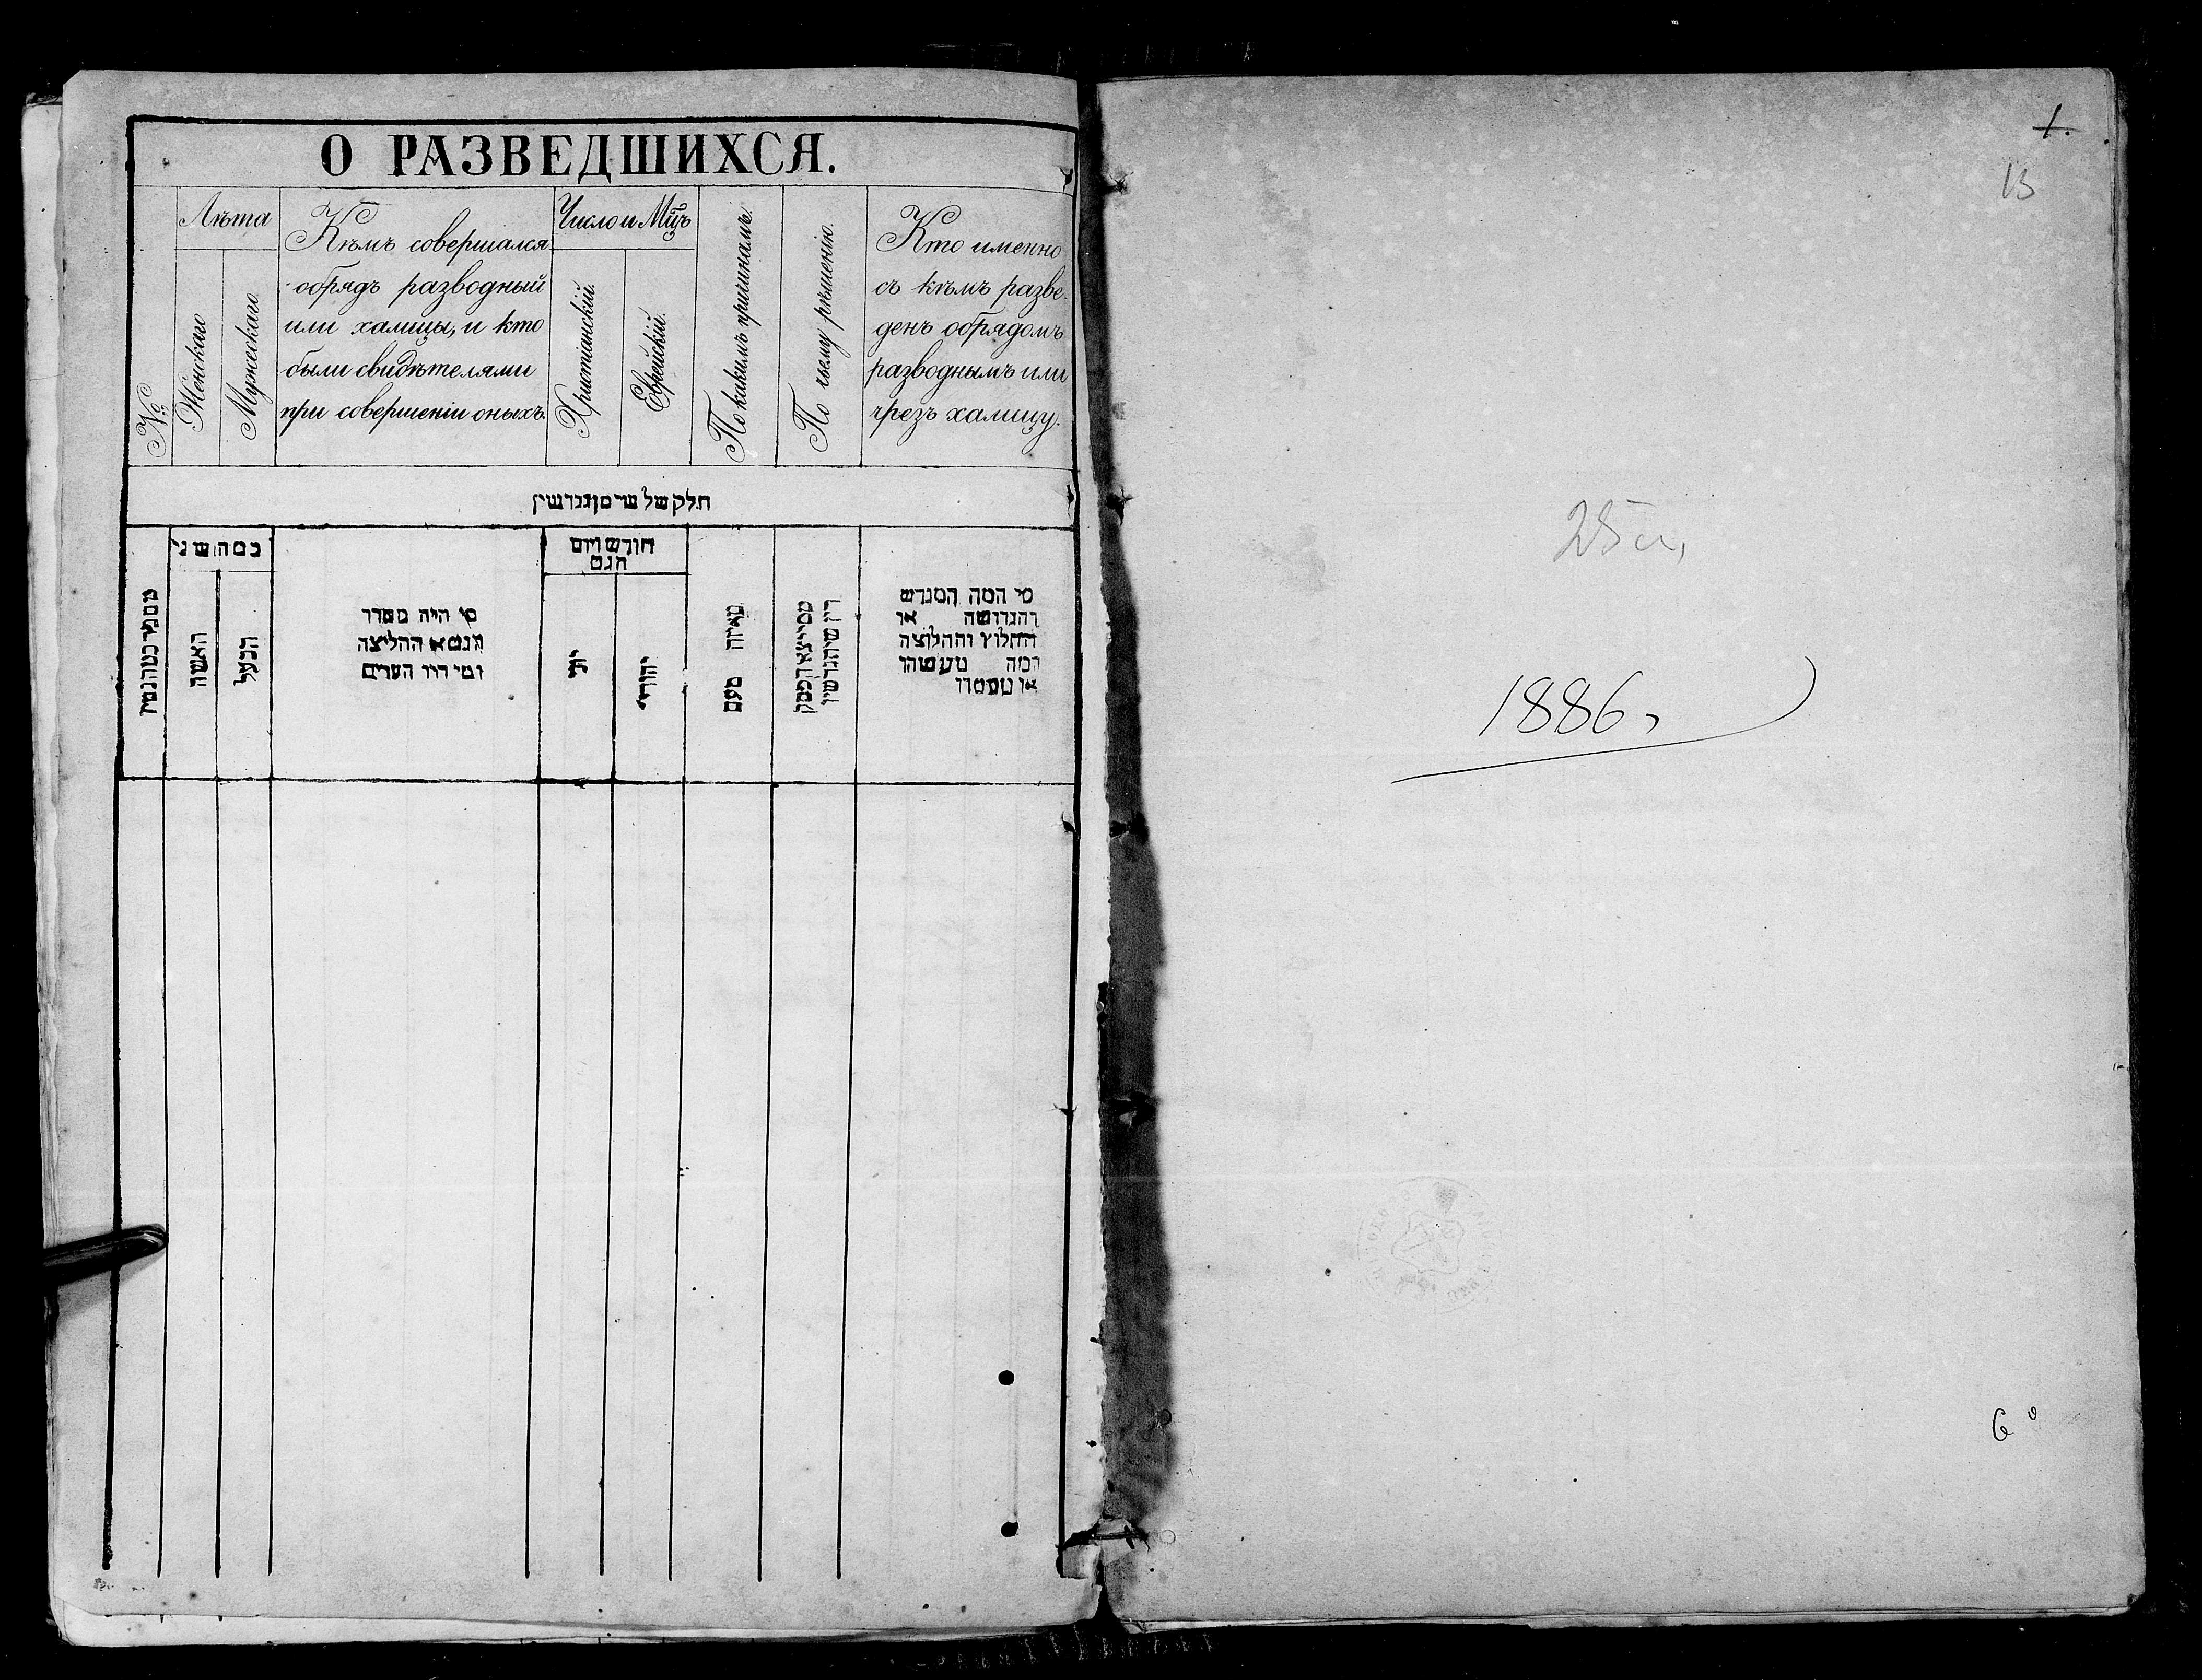 О РАЗВЕДШИХСЯ.
№
Лѣта
Женскаго
Мужескаго
Кѣмъ совершался
обрядъ разводный
или халицы, и кто
были свидѣтелями
при совершеніи оныхъ.
Число и Мц҃ъ
Христіанскій.
Еврейскій.
По какимъ причинамъ.
По чьему рѣшенію.
Кто именно
съ кѣмъ разве-
денъ обрядомъ
разводнымъ или
чрезъ халицу.
חלק של
האשה
הבעל
מי היה מסדר
ההליצה
חודש ויום
הגט
יהודי
מאיזה טעם
מי המה המגרש
והגרושה או
החלוץ וההלוצה
ומה
או
1.
13
1886,
6